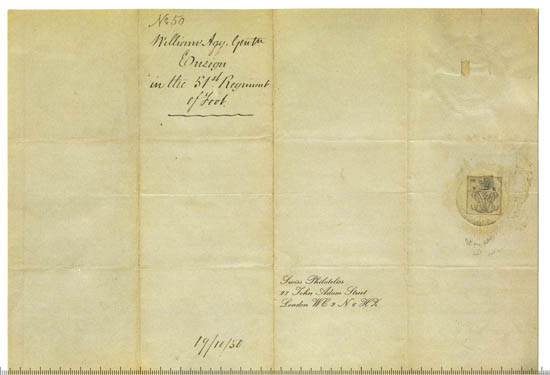 No 50
William Agg, Gentn
Ensign
in the 51st Regiment
of Foot.
Swiss Philatelics
27 John Adam Street
London WC 2 N 6 HX
19/10/50